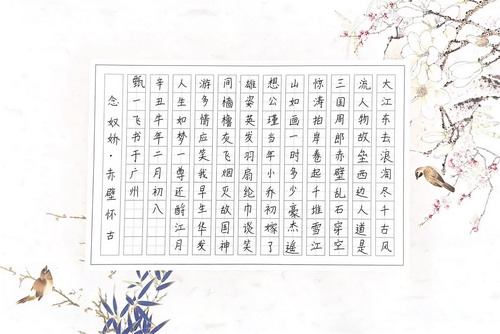 大江东去浪淘尽千古风
流人物故垒西边人道是
三国周郎赤壁乱石穿空
惊涛拍岸卷起千堆雪江
山如画一时多少豪杰遥
想公瑾当年小乔初嫁了
雄姿英发羽扇纶巾谈笑
间樯橹灰飞烟灭故国神
游多情应笑我早生华发
人生如梦一尊还酹江月
辛丑牛年二月初八
甄一飞书于广州
念奴娇·赤壁怀古